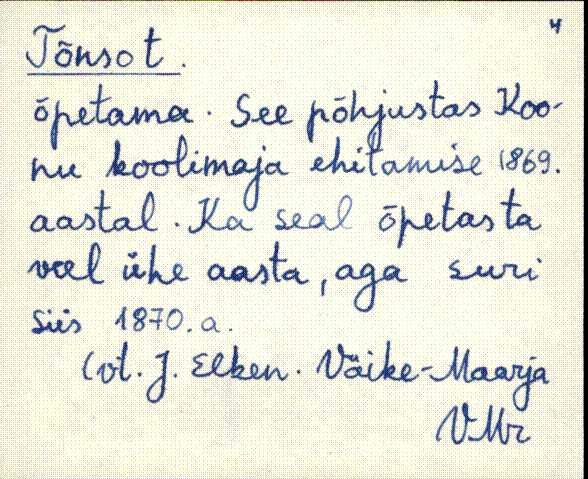 4
Tõnsot.
õpetama. See põhjustas Koo-
nu koolimaja ehitamise 1869.
aastal. Ka seal õpetas ta
veel ühe aasta, aga suri
siis 1870. a.
(vt. J. Elken. Väike-Maarja
VMr